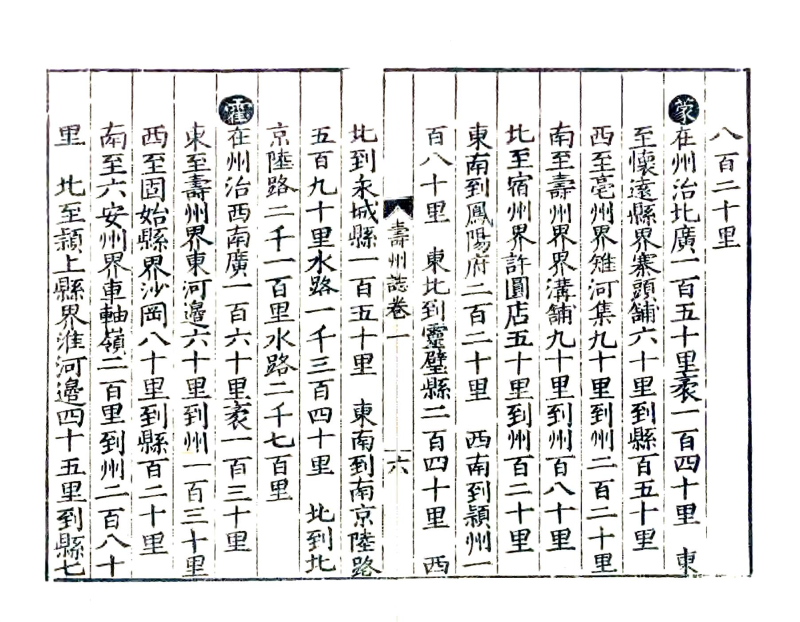 八百二十里
蒙在州治北廣一百五十里袤一百四十里　東
至懷遠縣界寨頭舖六十里到縣百五十里
西至亳州界雉河集九十里到州二百二十里
南至壽州界界溝舖九十里到州百八十里
北至宿州界許圓店五十里到州百二十里
東南到鳳陽府二百二十里　西南到潁州一
百八十里　東北到靈璧縣二百四十里　西
壽州誌卷一　六
北到永城縣一百五十里　東南到南京陸路
五百九十里水路一千三百四十里　北到北
京陸路二千一百里水路二千七百里
霍在州治西南廣一百六十里袤一百三十里
東至壽州界東河邊六十里到州一百三十里
西至固始縣界沙岡八十里到縣百二十里
南至六安州界車軸嶺二百里到州二百八十
里　北至潁上縣界淮河邊四十五里到縣七